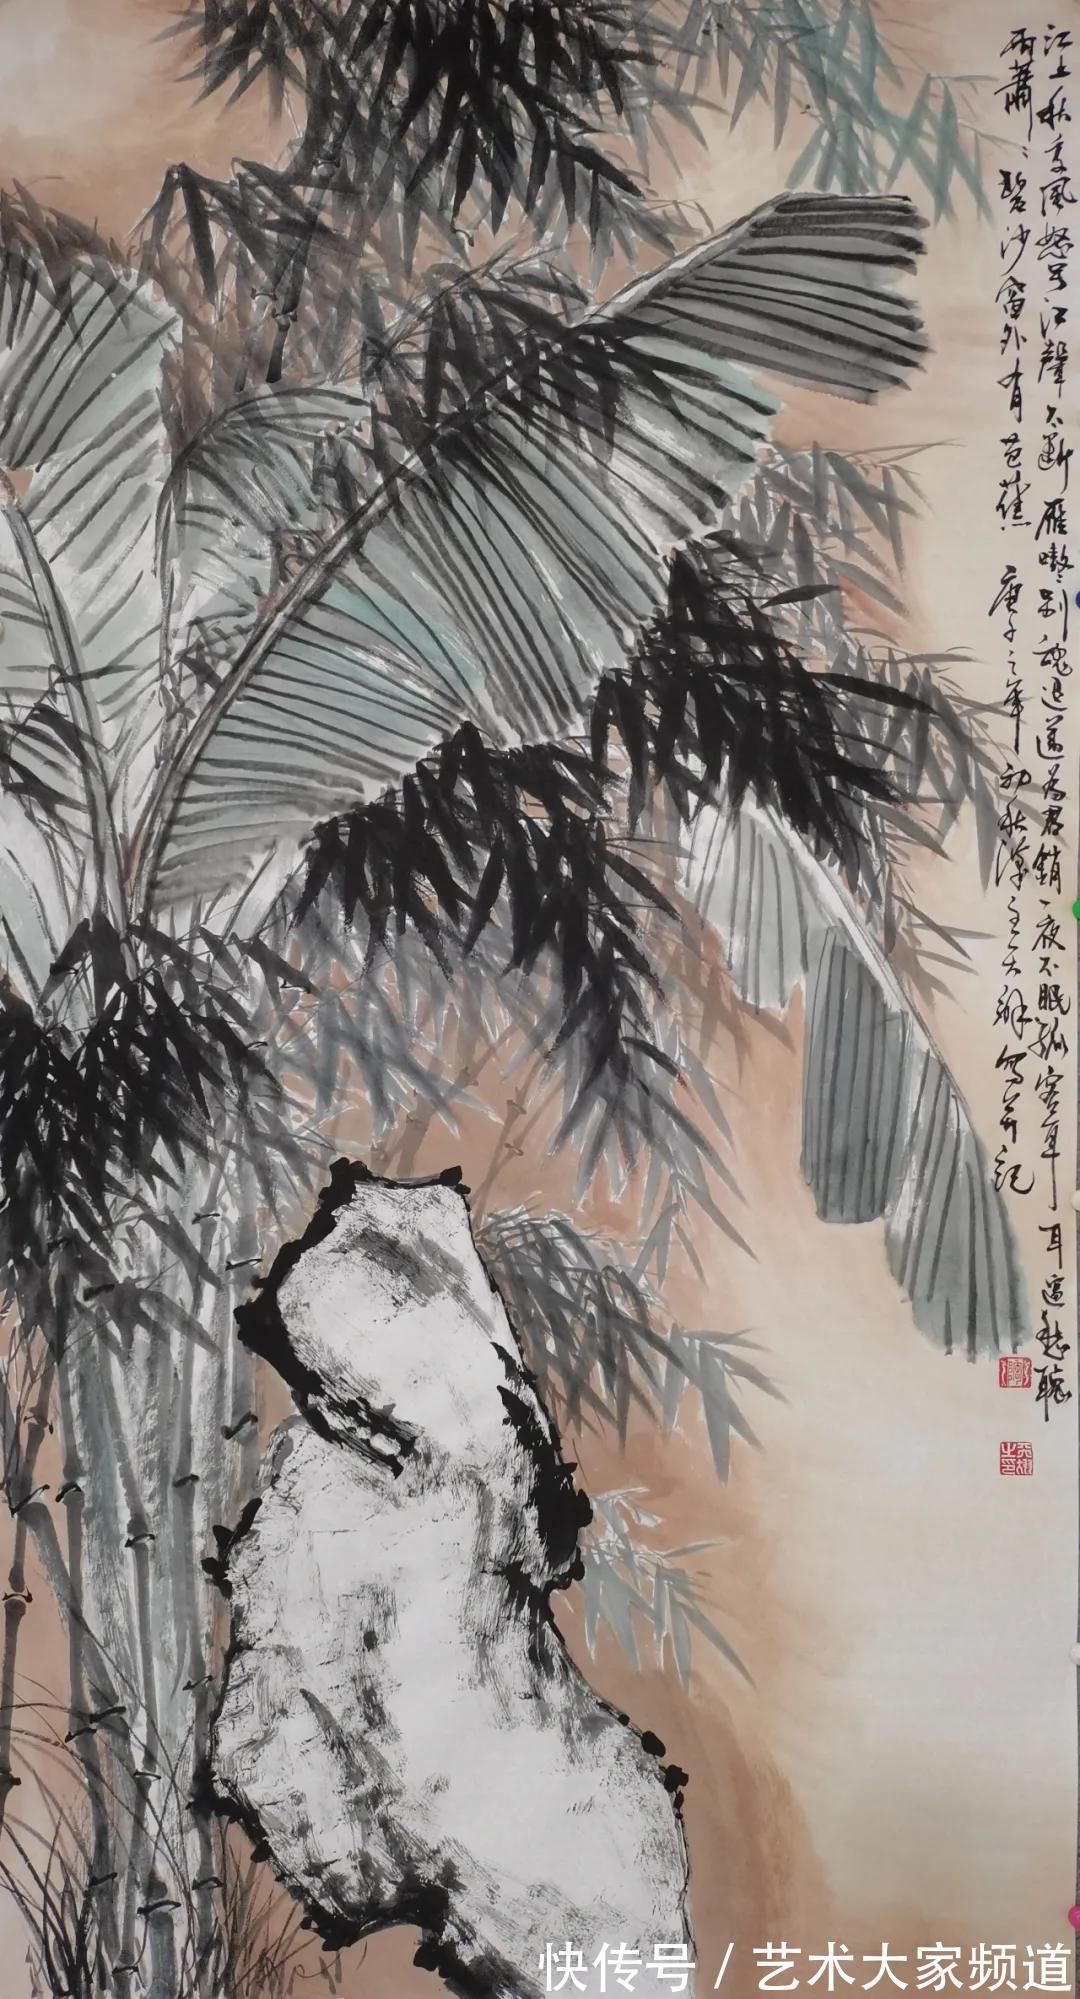 江上秋風怒号江聲不断雁嗷嗷别魂迢遞為君銷一夜不眠孤客耳耳邊愁聽
雨蕭蕭碧沙窗外有芭蕉 庚子之年初秋 天 寫并記
快传号/艺术大家频道